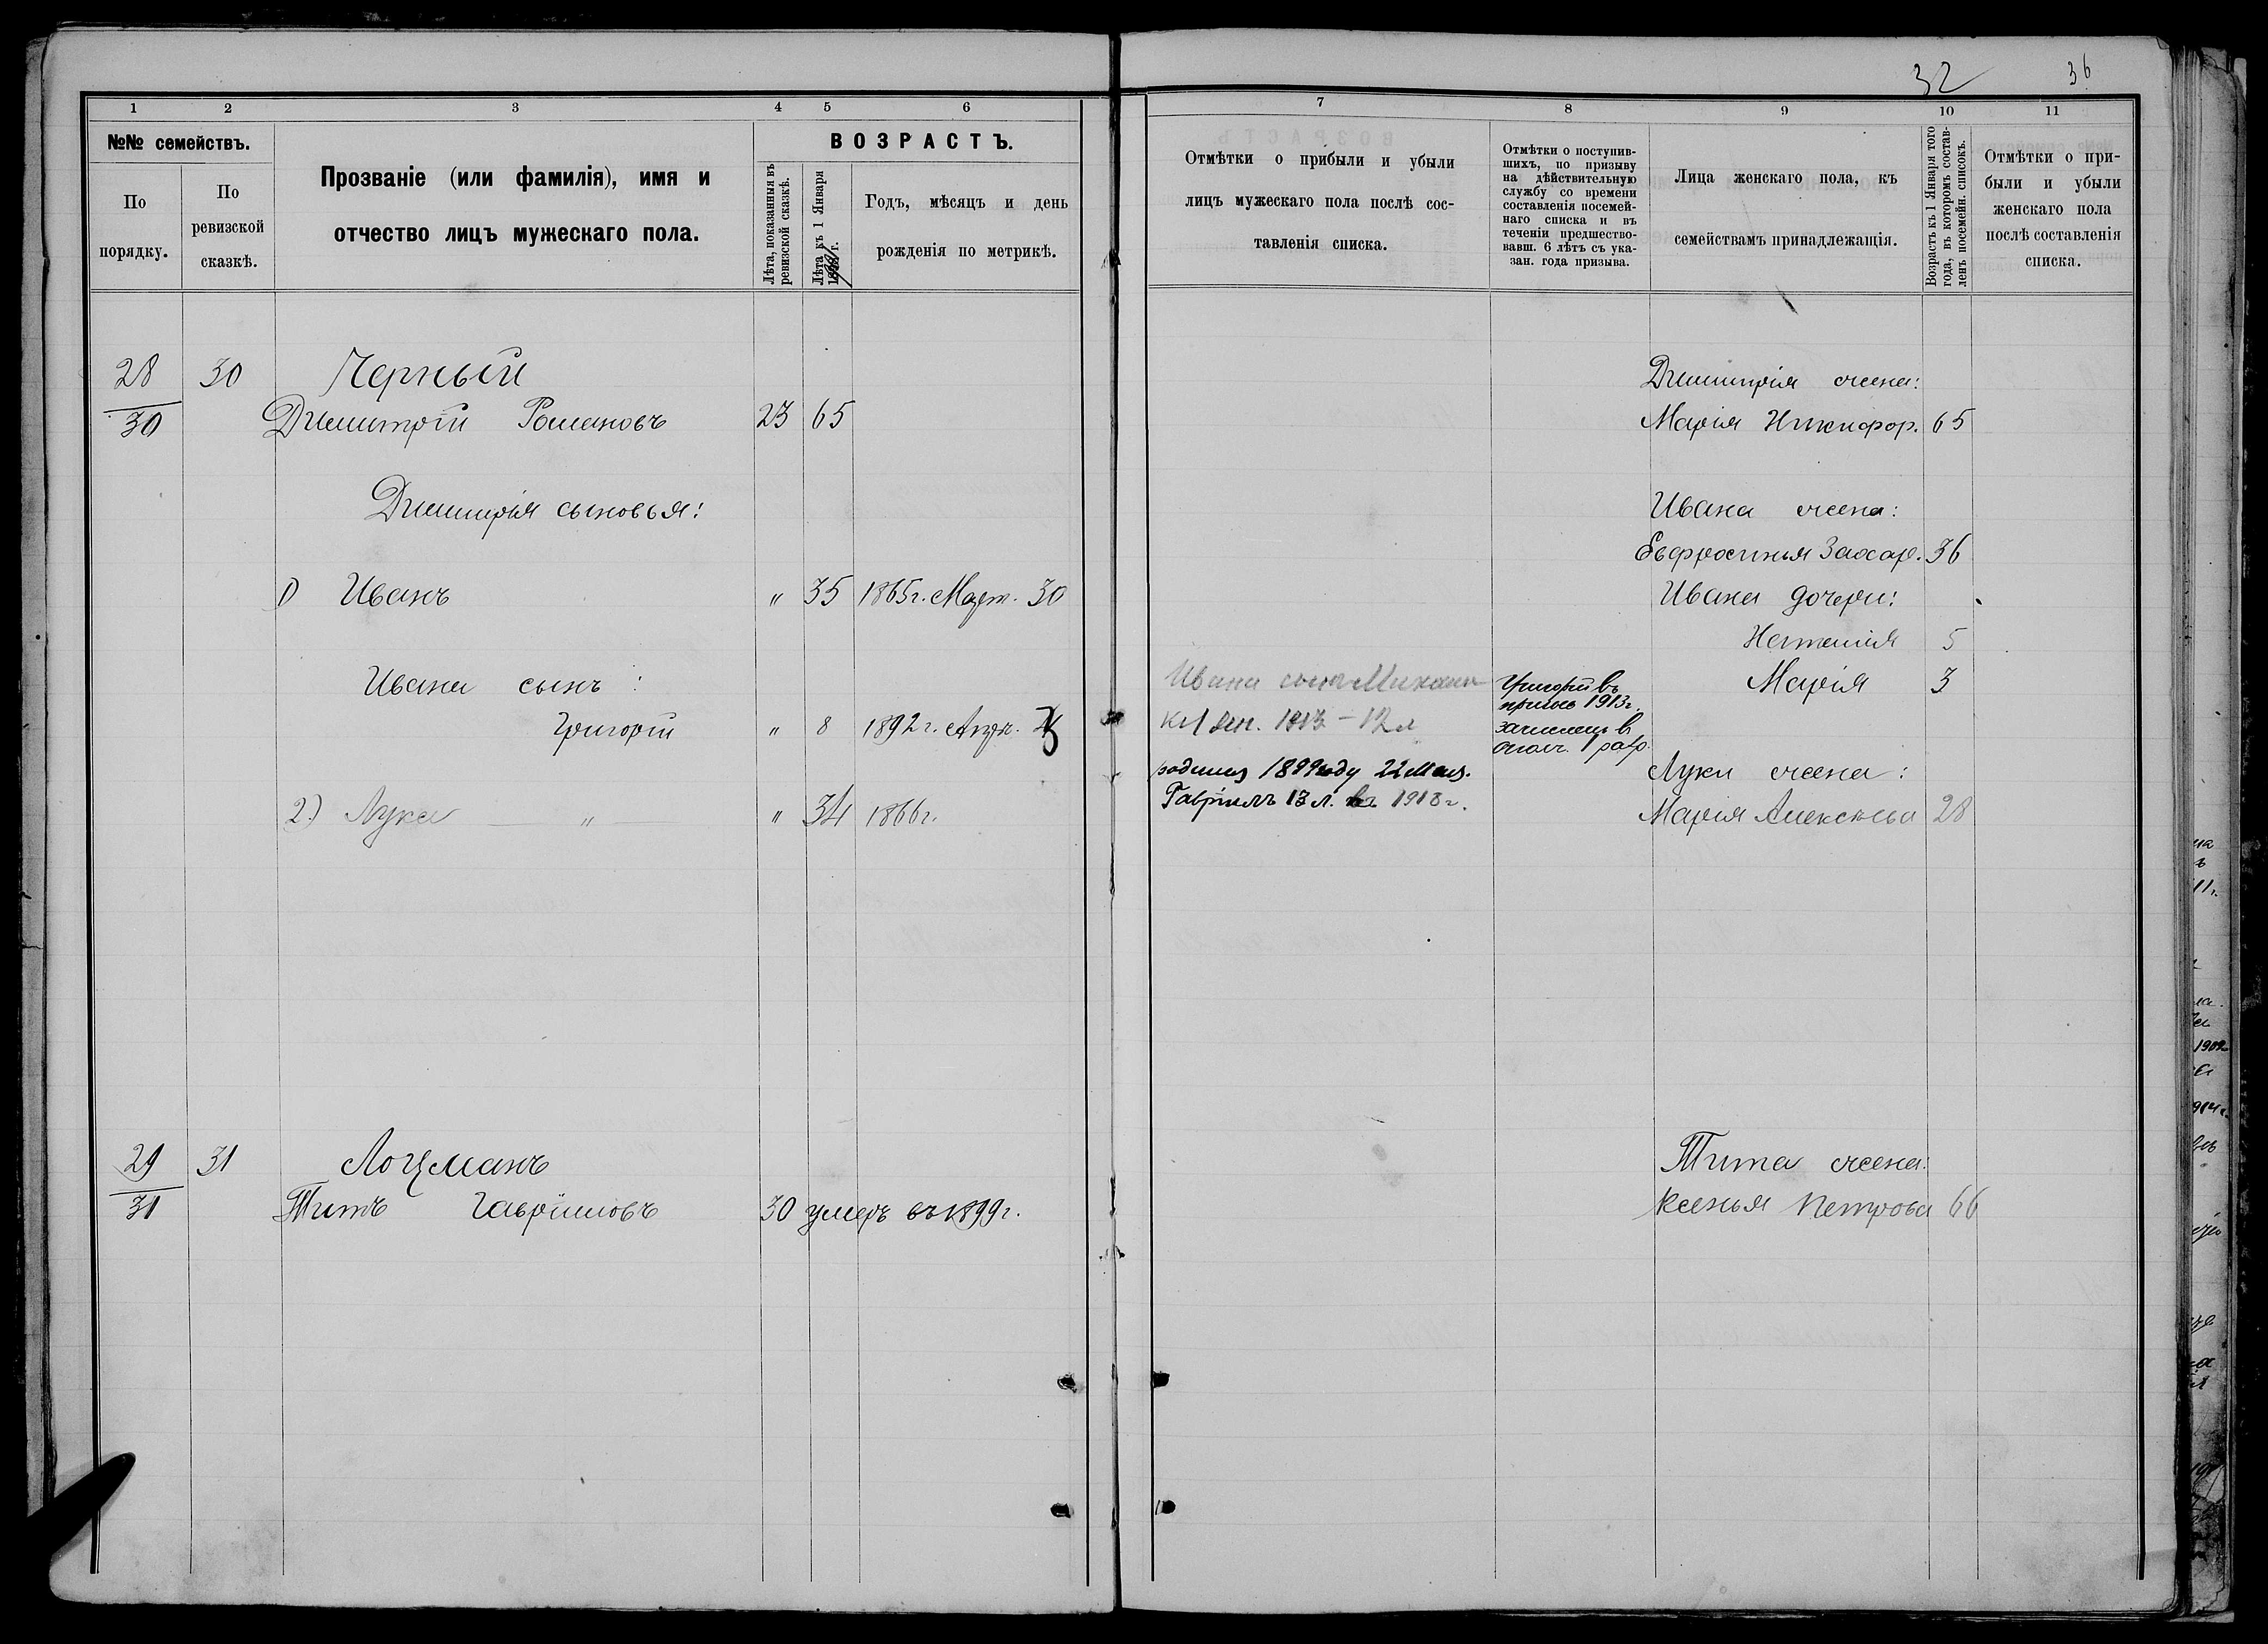 32 36
1 2 3 4 5 6
№№ семействъ.
По порядку.
По ревизской сказкѣ.
Прозваніе (или фамилія), имя и
отчество лицъ мужескаго пола.
ВОЗРАСТЪ.
Лѣта, показанныя въ
ревизской сказкѣ.
Лѣта къ 1 Января
Годъ, мѣсяцъ и день
рожденія по метрикѣ.
28 30 Черный
30 Димитрій Романовъ 23 65
Димитрія сыновья:
1) Иванъ " 35 1865г. Март. 30
Ивана сынъ:
Григорій " 8 1892г. Апр.
2.) Лука — " — " 34 1866г.
29 31 Лоцманъ
31 Титъ Гавріиловъ 30 умеръ въ 1899г.
7 8 9 10 11
Отмѣтки о прибыли и убыли
лицъ мужескаго пола послѣ сос-
тавленія списка.
Отмѣтки о поступив-
шихъ, по призыву
на дѣйствительную
службу со времени
составленія посемей-
наго списка и въ
теченіи предшество-
вавш. 6 лѣтъ съ ука-
зан. года призыва.
Лица женскаго пола, къ
семействамъ принадлежащія.
Возрастъ къ 1 Января того
года, въ которомъ состав-
ленъ посемейн. списокъ.
Отмѣтки о при-
были и убыли
женскаго пола
послѣ составленія
списка.
Димитрія жена:
Марія Никифор. 65
Ивана жена:
Евфросинья Захар. 36
Ивана дочери:
Наталія 5
Марія 3
Ивана сынъ Михаилъ
к 1 ян. 1913 - 12 л
родился 1899 году 22 Мая.
Гавріилъ 13 л. въ 1913 г.
Григорій въ
призыв 1913г.
зачислен в
ополч. 1 разр.
Луки жена:
Марія Алексѣева 28
Тита жена:
Ксенья Петрова 66